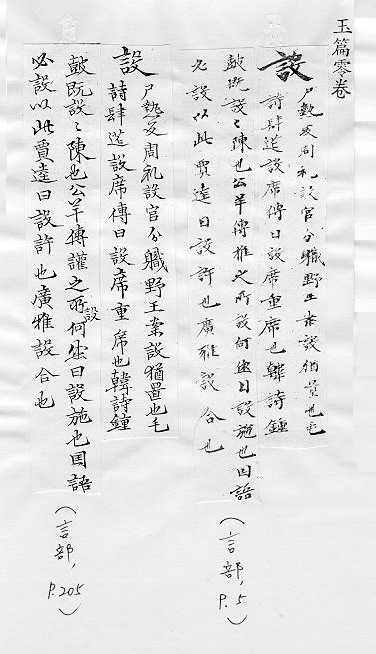 玉篇零卷
設
尸熱反周礼設官分軄野王案設猶置也毛
詩肆莚設席傳曰設席重席也韓詩鍾
皷既設〻陳也公羊傳推之所設何休曰設施也囯語
必設以此賈逵曰設許也廣雅設合也
(言部, P.5)
設
尸熱反周礼設官分軄野王案設猶置也毛
詩肆莚設席傳曰設席重席也韓詩鐘
皷既設〻陳也公羊傳權之所設何休曰設施也囯語
必設以此賈逵曰設許也廣雅設合也
(言部, P.205)